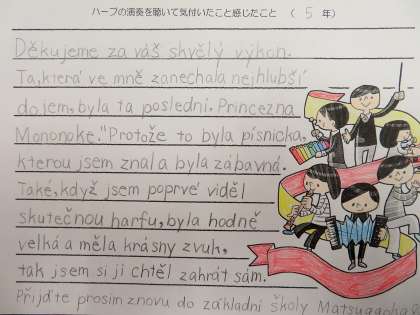 ハープの演奏を聴いて気付いたこと感じたこと （ 5 年）
Děkujeme za váš skvělý výkon.
Ta, která ve mně zanechala nejhlubší
dojem, byla ta poslední. Princezna
Mononoke." Protože to byla písnička,
kterou jsem znal a byla zábavná.
Také, když jsem poprvé viděl
skutečnou harfu, byla hodně
velká a měla krásny zvuk,
tak jsem si ji chtěl zahrát sám.
Přijďte prosim znovu do základní školy